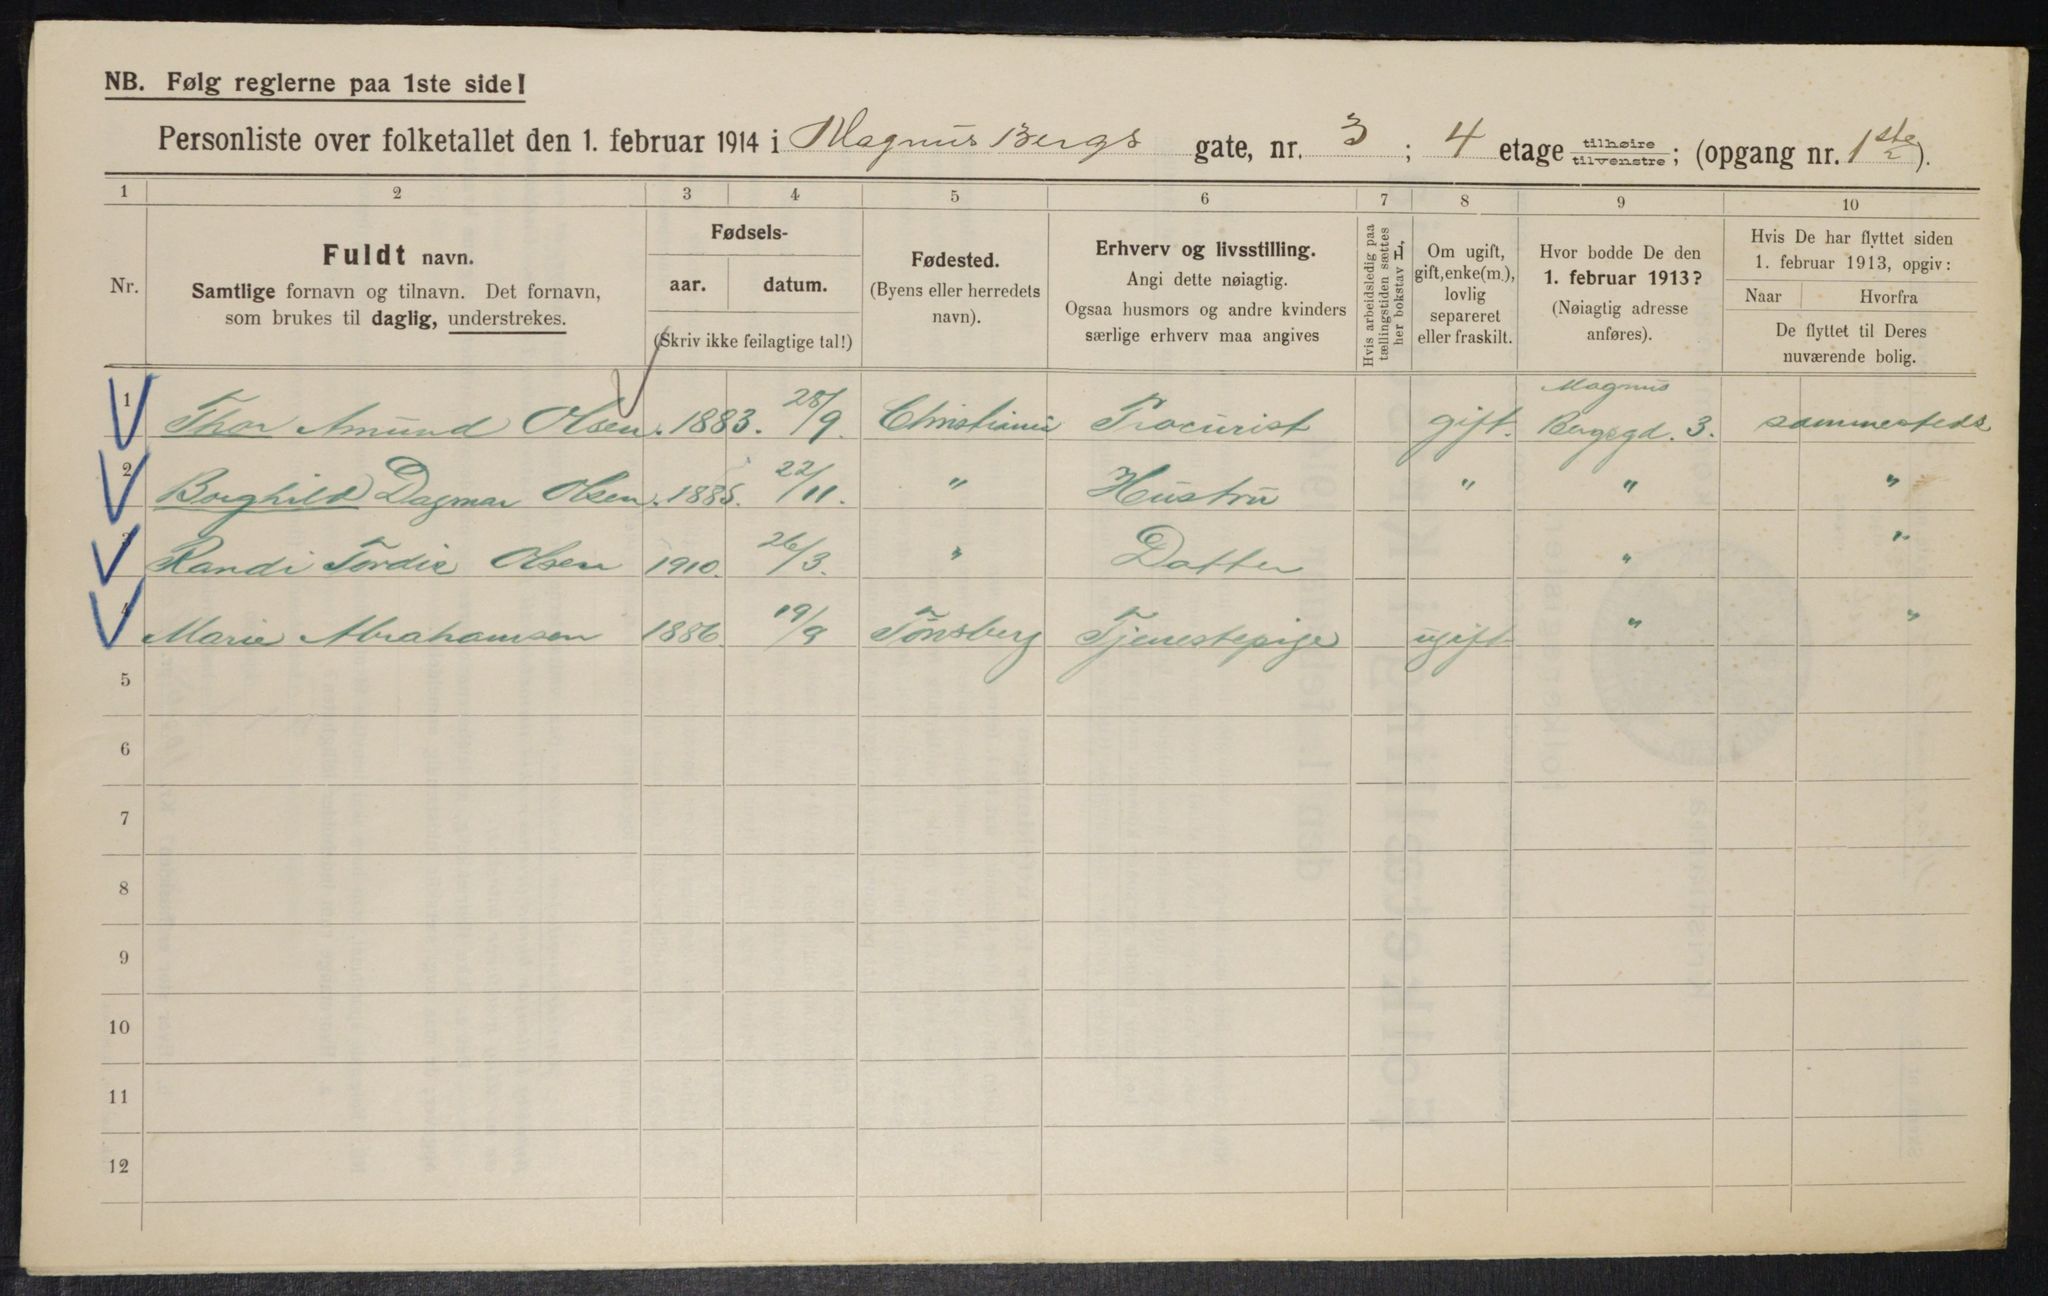 NB. Følg reglerne paa 1ste side!
Personliste over folketallet den 1. februar 1914 i Magnus Bergs gate, nr. 3; 4 etage tilhøire tilvenstre; (opgang nr. 1ste).
1 2 3 4 5 6 7 8 9 10
Nr.
Fuldt navn.
Samtlige fornavn og tilnavn. Det fornavn,
som brukes til daglig, understrekes.
Fødsels-
aar. datum.
(Skriv ikke feilagtige tal!)
Fødested.
(Byens eller herredets
navn).
Erhverv og livsstilling.
Angi dette nøiagtig.
Ogsaa husmors og andre kvinders
særlige erhverv maa angives
Hvis arbeidsledig paa
tællingstiden sættes
her bokstav L,
Om ugift,
gift, enke(m.),
lovlig
separeret
eller fraskilt.
Hvor bodde De den
1. februar 1913?
(Nøiagtig adresse
anføres).
Hvis De har flyttet siden
1. februar 1913, opgiv:
Naar Hvorfra
De flyttet til Deres
nuværende bolig.
1 Thor Amund Olsen. 1883. 28/9. Christiania Procurist gift. Magnus Bergsgd. 3. sammesteds
2 Borghild Dagmar Olsen. 1885. 22/11. " Hustru " " "
3 Randi Tordis Olsen 1910. 26/3. " Datter " "
4 Marie Abrahamsen 1886. 19/8 Tønsberg Tjenestepige ugift " "
5
6
7
8
9
10
11
12